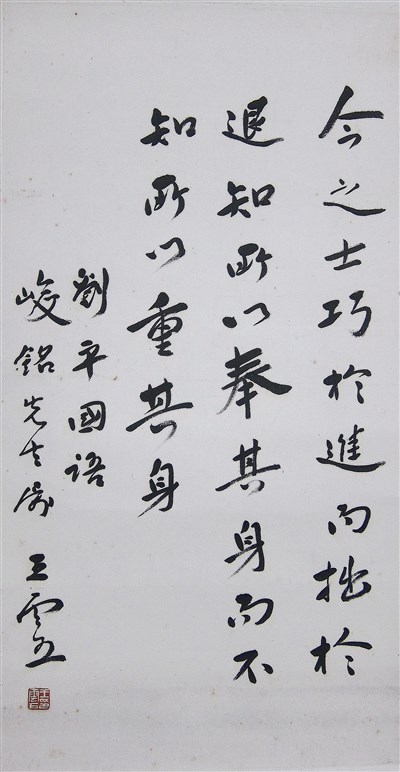 今之士巧於進而拙於
退知所以奉其身而不
知所以重其身
劉平國語
峻銘先生屬 王雲五